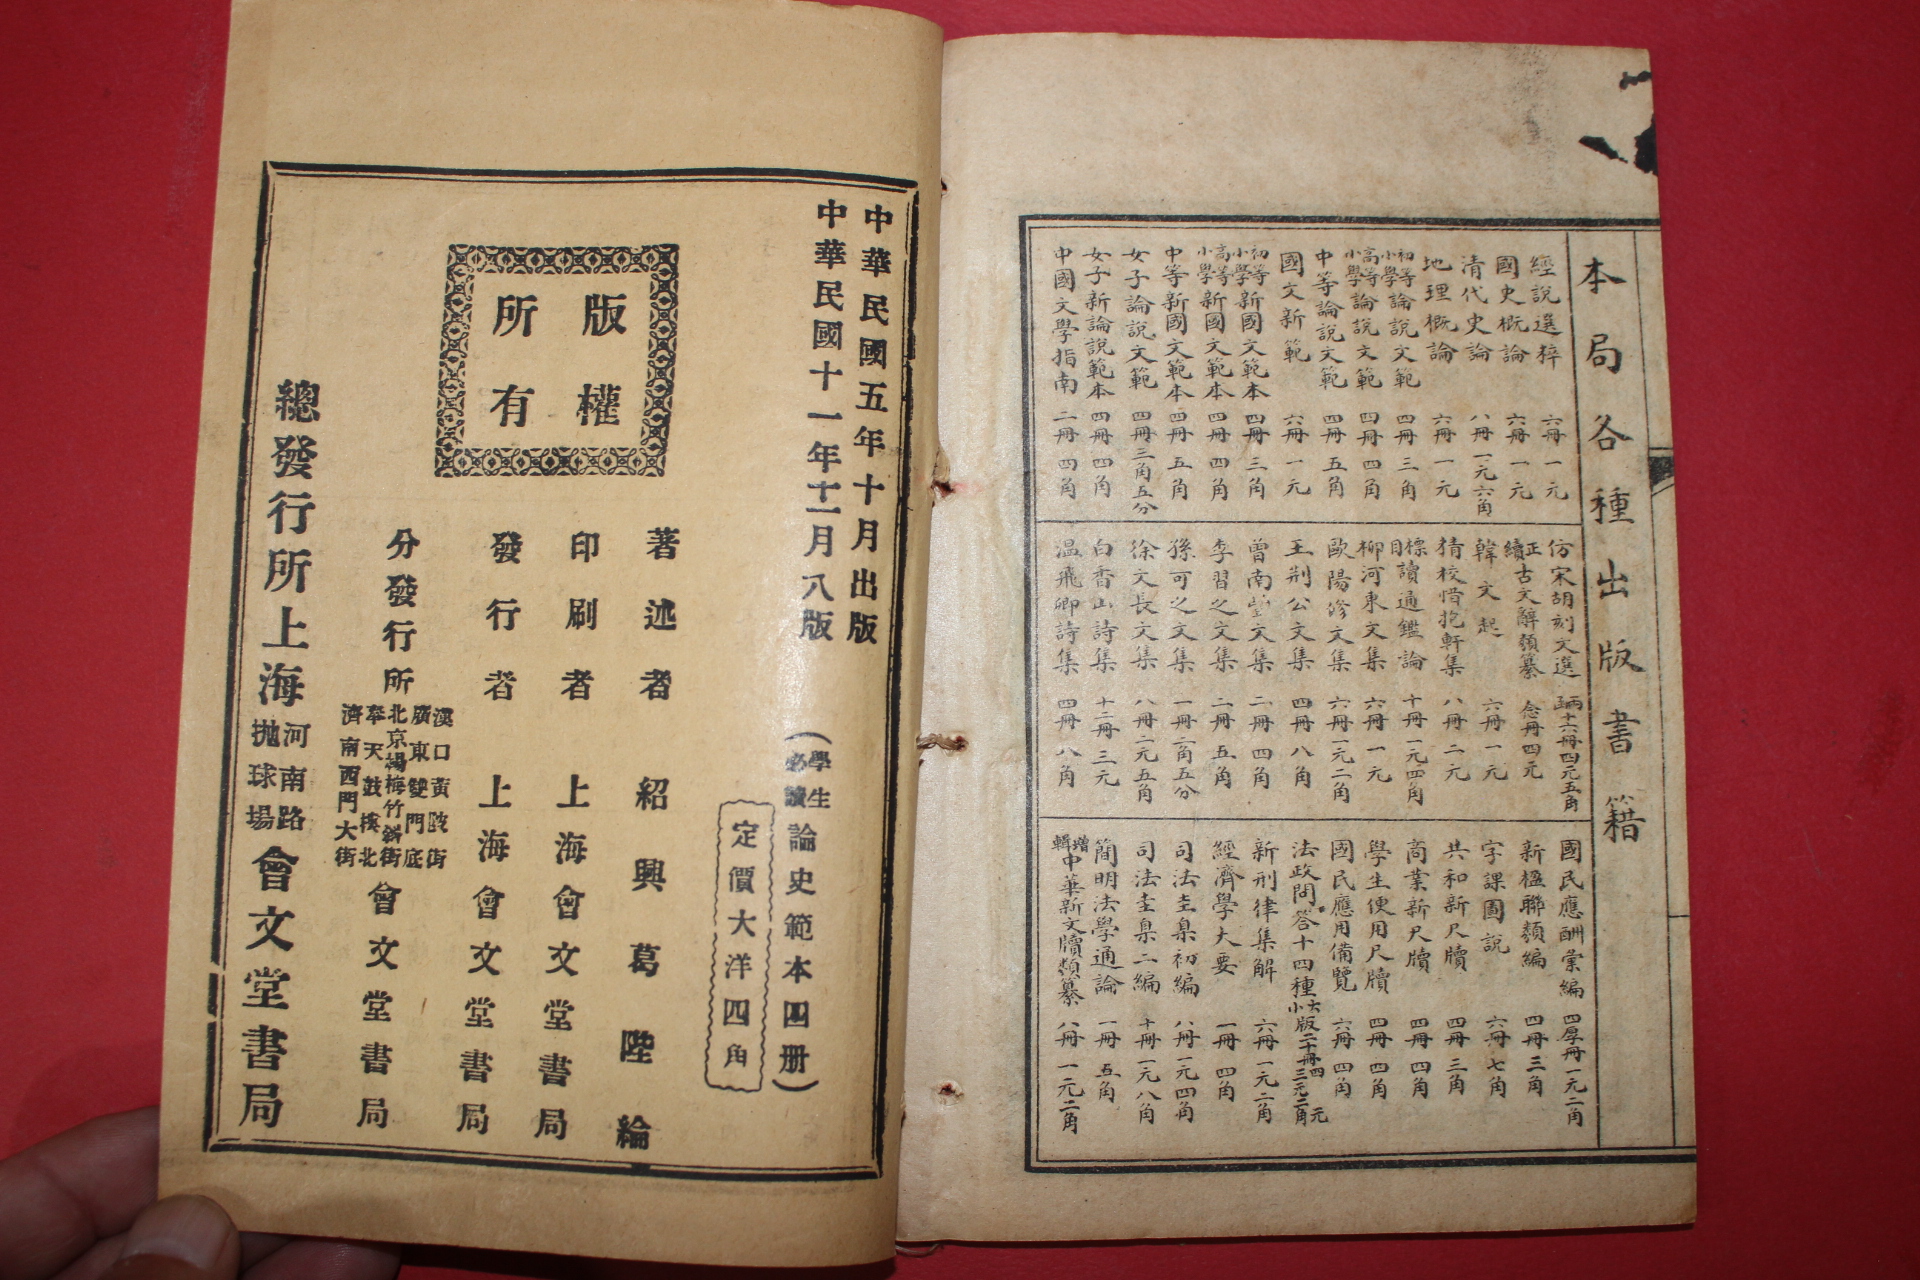 本局各種出版書籍
經說選粹 六冊 一元
國史概論 六冊 一元
清代史論 八冊 一元六角
地理概論 六冊 一元
初等小學論說文範 四冊 三角
高等小學論說文範 四冊 四角
中等論說文範 四冊 五角
國文新範 六冊 一元
初等小學新國文範本 四冊 三角
高等小學新國文範本 四冊 四角
中等新國文範本 四冊 五角
女子論說文範 四冊 三角五分
女子新論說範本 四冊 四角
中國文學指南 二冊 四角
仿宋胡刻文選 十六冊 四元五角
正續古文辭類纂 念冊 四元
韓文起 六冊 一元
猜校惜抱軒集 八冊 二元
標目讀通鑑論 十冊 一元四角
柳河東文集 六冊 一元
歐陽修文集 六冊 一元二角
王荆公文集 四冊 八角
曾南豐文集 二冊 四角
李習之文集 二冊 五角
孫可之文集 一冊 二角五分
徐文長文集 八冊 二元五角
白香山詩集 十二冊 三元
温飛卿詩集 四冊 八角
國民應酬彙編 四厚冊 一元二角
新楹聯類編 四冊 三角
字課圖說 六冊 七角
共和新尺牘 四冊 三角
商業新尺牘 四冊 四角
學生便用尺牘 四冊 四角
國民應用備覽 六冊 四角
法政問答十四種 大小版二十冊 四元 三元二角
新刑律集解 六冊 一元二角
經濟學大要 一冊 四角
司法圭臬初編 八冊 一元四角
司法圭臬二編 十冊 一元八角
簡明法學通論 一冊 五角
增輯中華新文牘類纂 八冊 一元二角
中華民國五年十月出版
中華民國十一年十二月八版
(學生必讀論史範本四册)
定價大洋四角
版權所有
著述者 紹興葛陛綸
印刷者 上海會文堂書局
發行者 上海會文堂書局
分發行所 漢口黃陂街 廣東雙門底 北京楊梅竹斜街 奉天鼓樓北 濟南西門大街 會文堂書局
總發行所上海河南路拋球場會文堂書局